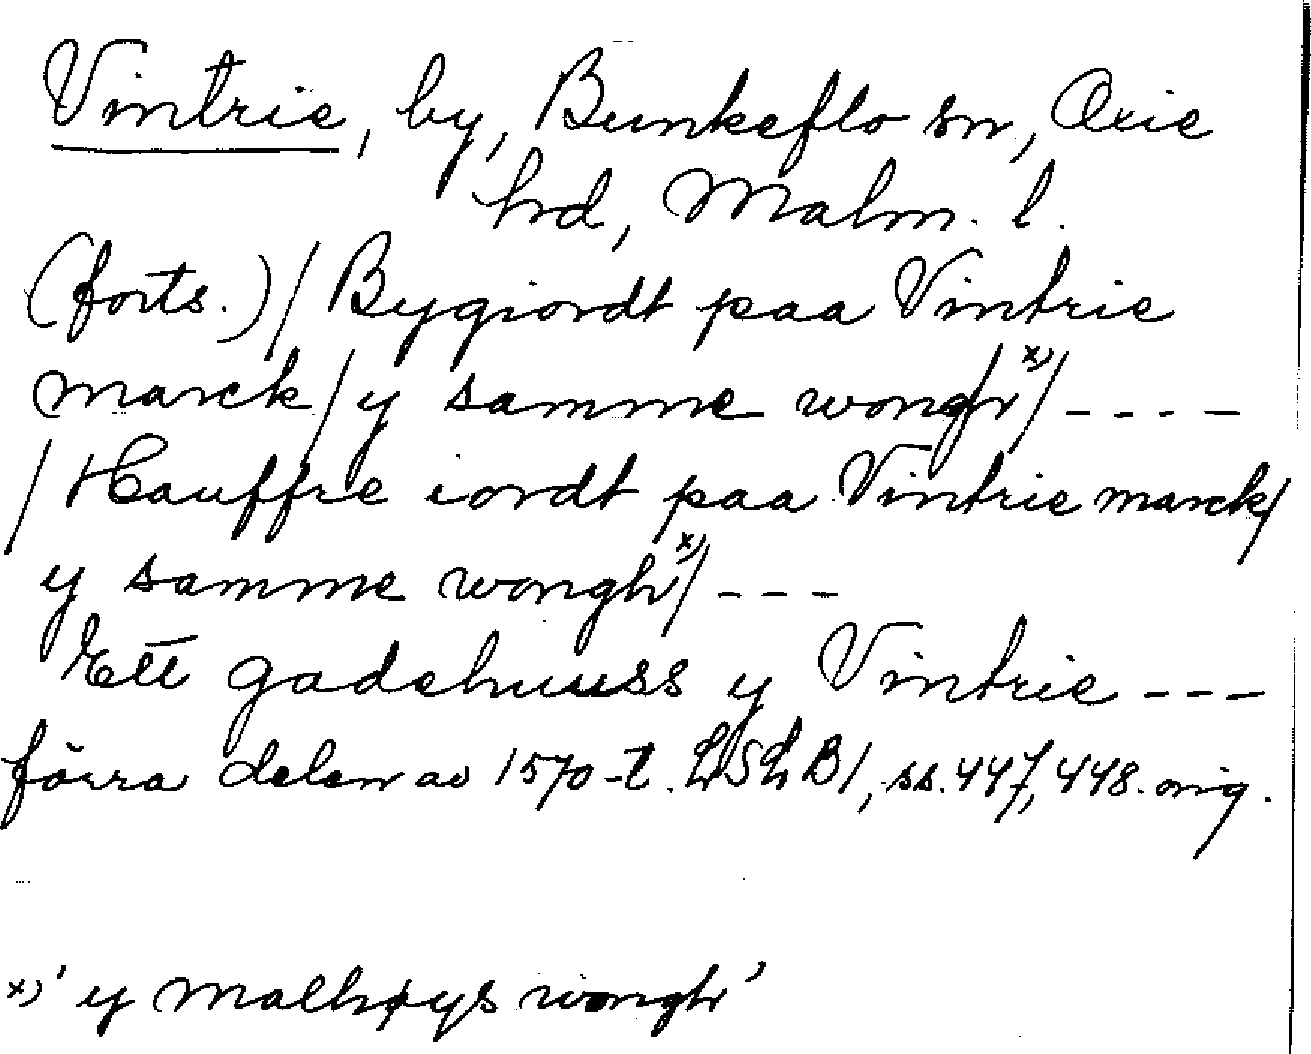 Vintrie, by, Bunkeflo sn, Oxie
hd, Malm. l.
(forts.) / Bygiordt paa Vintrie
marck / y samme wongh x) / - - - -
/ Hauffre iordt paa Vintrie marck /
y samme wongh x) / - - -
Ett gadehuuss y Vintrie - - -
förra delen av 1570-t. LSLB1, ss. 447, 448. orig.
x) 'y Malhøys wongh'